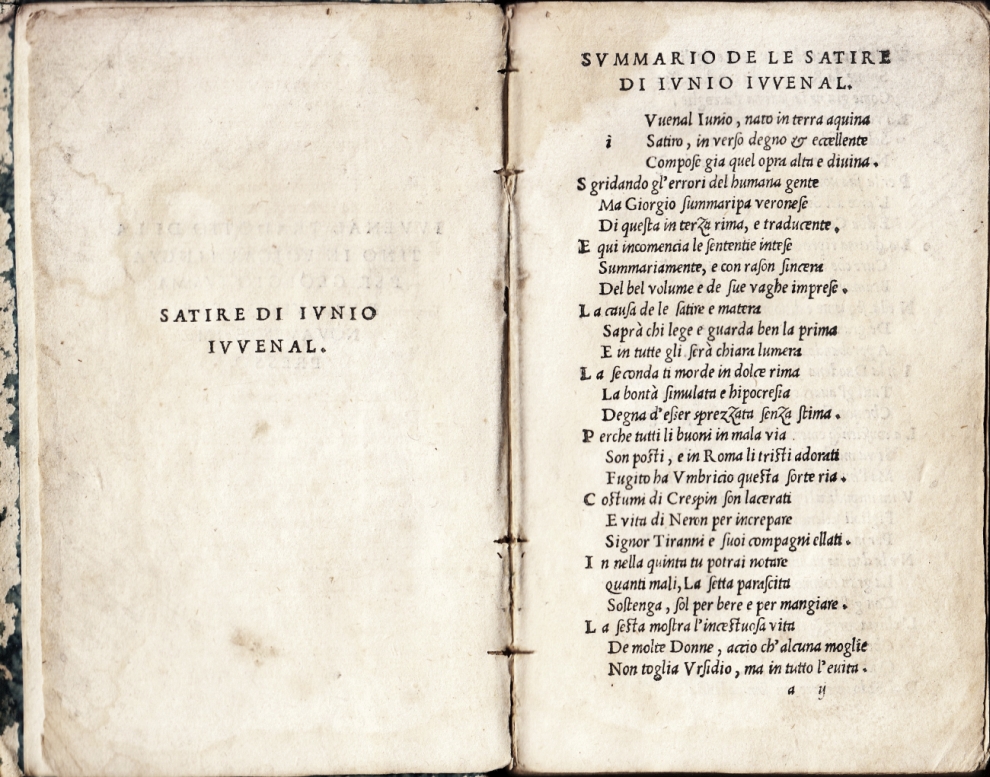 SATIRE DI IVNIO
IVVENAL.
SVMMARIO DE LE SATIRE
DI IVNIO IVVENAL.
Vuenal Iunio, nato in terra aquina
i Satiro, in verso degno & eccellente
Compose gia quel opra alta e diuina.
S gridando gl'errori del humana gente
Ma Giorgio summaripa veronese
Di questa in terza rima, e traducente.
E qui incomencia le sententie intese
Summariamente, e con rason sincera
Del bel volume e de sue vaghe imprese.
L a causa de le satire e matera
Saprà chi lege e guarda ben la prima
E in tutte gli serà chiara lumera
L a seconda ti morde in dolce rima
La bontà simulata e hipocresia
Degna d'esser sprezzata senza stima.
P erche tutti li buoni in mala via
Son posti, e in Roma li tristi adorati
Fugito ha Vmbricio questa sorte ria.
C ostumi di Crespin son lacerati
E vita di Neron per increpare
Signor Tiranni e suoi compagni ellati.
I n nella quinta tu potrai notare
quanti mali, La setta parascita
Sostenga, sol per bere e per mangiare.
L a sesta mostra l'incestuosa vita
De molte Donne, accio ch'alcuna moglie
Non toglia Vrsidio, ma in tutto l'euita.
a ij